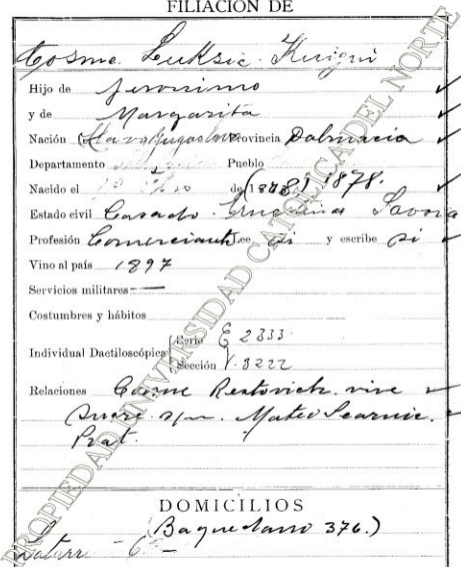 FILIACION DE
Cosme Luksic Kuigui
Hijo de Jeronimo
y de Margarita
Nación (Slavo Yugoslavo Provincia Dalmacia
Departamento Pueblo
Nacido el de (1878) 1878.
Estado civil Casado Savona
Profesión Comerciante Lee si y escribe si
Vino al país 1897
Servicios militares —
Costumbres y hábitos
Individual Dactiloscópica Serie E 2333
Sección V. 3222
Relaciones Cosme Restovich vive
Sucre s/n. Mateo
Prat.
DOMICILIOS
(Baquedano 376.)
PROPIEDAD UNIVERSIDAD CATOLICA DEL NORTE